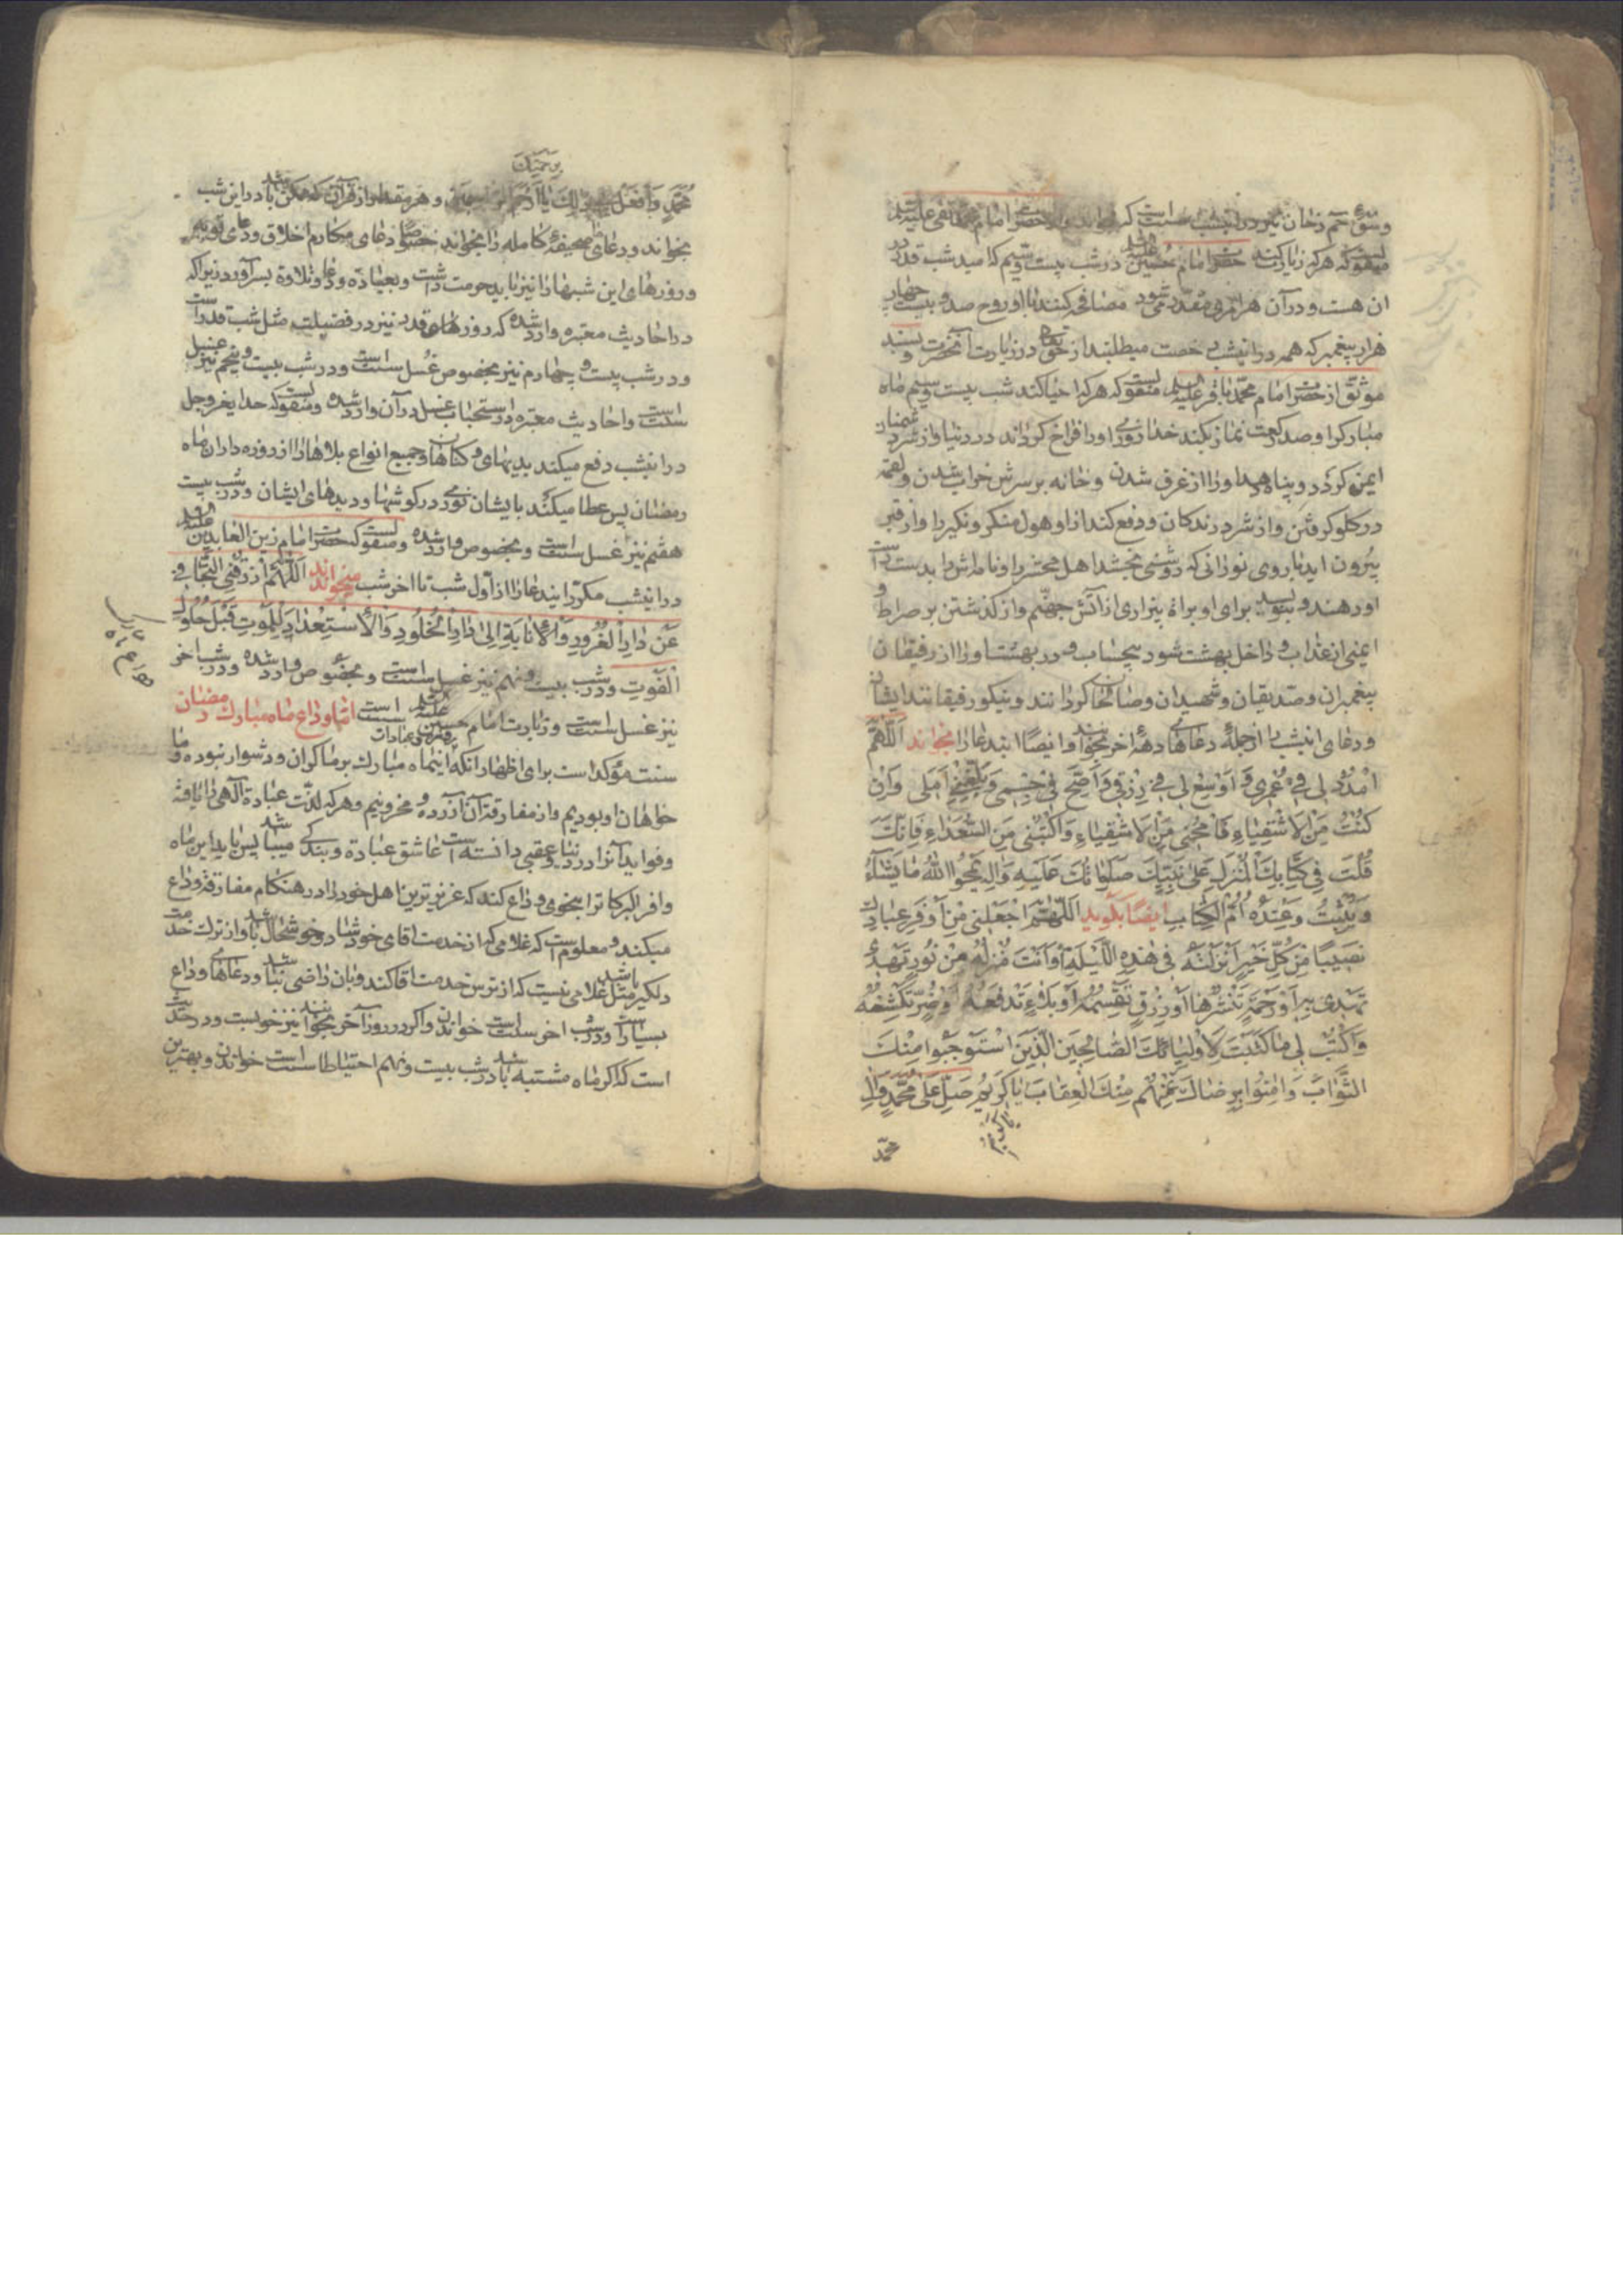 وسورۀ حم دخان نیز در اینشب سنت است که بخوانند و از حضرت امام محمد تقی علیه السلام
منقولست که هر که زیارت کند حضرت امام حسین علیه السلام در شب بیست و سیم که امید شب قدر در
آن هست و در آن هر امری مقدر می شود مصافحه کنند با او روح صد و بیست و چهار
هزار پیغمبر که همه در اینشب رخصت میطلبند از حق تعالی در زیارت آنحضرت و بسند
موثق از حضرت امام محمد باقر علیه السلام منقولست که هر که احیا کند شب بیست و سیم ماه
مبارک را و صد رکعت نماز بکند خدا روزی او را فراخ گرداند در دنیا و از شر دشمنان
ایمن گردد و پناه دهد او را از غرق شدن و خانه بر سرش خراب شدن و لقمه
در گلو گرفتن و از شر درندگان و دفع کند از او هول منکر و نکیر را و از قبر
بیرون آید با روی نورانی که روشنی بخشد اهل محشر را و نامه اش را بدست راست
او دهند و بنویسد برای او براة بیزاری از آتش جهنم و از گذشتن بر صراط و
ایمنی از عذاب و داخل بهشت شود بیحساب و در بهشت او را از رفیقان
پیغمبران و صدیقان و شهیدان و صالحان گردانند و نیکو رفیقانند ایشان
و دعای اینشب را از جملۀ دعاهای دهۀ اخر بخوانند و ایضا ایندعا را بخواند اَللّهُمَّ
امْدُدْ لی فِی عُمُری وَ اَوْسِعْ لی فی رِزْقی وَ اَصِحَّ لی جِسْمی وَ بَلِّغْنی اَمَلی وَ اِنْ
کُنْتُ مِنَ الاَشْقِیاءِ فَامْحُنی مِنَ الاَشْقِیاءِ وَ اکْتُبْنی مِنَ السُّعَداءِ فَاِنَّکَ
قُلْتَ فی کِتابِکَ الْمُنْزَلِ عَلی نَبِیِّکَ صَلَواتُکَ عَلَیْهِ وَ الِهِ یَمْحُوا اللهُ ما یَشاءُ
وَ یُثْبِتُ وَ عِنْدَهُ اُمُّ الْکِتابِ ایضا بگوید اَللّهُمَّ اجْعَلْنی مِنْ اَوْفَرِ عِبادِکَ
نَصیباً مِنْ کُلِّ خَیْرٍ اَنْزَلْتَهُ فی هٰذِهِ اللَّیْلَةِ اَوْ اَنْتَ مُنْزِلُهُ مِنْ نُورٍ تَهْدی
تهدی بِهِ اَوْ رَحْمَةٍ تَنْشُرُها اَوْ رِزْقٍ تَقْسِمُهُ اَوْ بَلاءٍ تَدْفَعُهُ اَوْ ضُرٍّ تَکْشِفُهُ
وَ اکْتُبْ لی ما کَتَبْتَ لِاَوْلِیائِکَ الصّالِحینَ الَّذینَ اسْتَوْجَبُوا مِنْکَ
الثَّوابَ وَ امِنُوا بِرِضاکَ عَنْهُمْ مِنْکَ الْعِقابَ یا کَریمُ صَلِّ عَلی مُحَمَّدٍ وَ الِ
یا کریم
محمد
برحمتک
مُحَمَّدٍ وَ افْعَلْ بی ذلِکَ یا اَرْحَمَ الرّاحِمینَ و هر مقدار از قرآن که ممکن باشد در این شب
بخواند و دعاهای صحیفۀ کامله را بخواند خصوصا دعای مکارم اخلاق و دعای توبه
و روزهای این شبها را نیز باید حرمت داشت و بعبادة و دعا و تلاوة بسر آورد زیرا که
در احادیث معتبره وارد شده که روزهای قدر نیز در فضیلت مثل شب قدر است
و در شب بیست و چهارم نیز بخصوص غسل سنت است و در شب بیست و پنجم نیز غسل
سنت است و احادیث معتبره در استحباب غسل در آن وارد شده و منقولست که خدای عز و جل
در اینشب دفع میکند بدیهای و گناهان و جمیع انواع بلاها را از روزه داران ماه
رمضان پس عطا میکند بایشان نوری در گوشها و دیدهای ایشان و در شب بیست
هفتم نیز غسل سنت است و بخصوص وارد شده و منقولست که حضرت امام زین العابدین علیه السلام
در اینشب مکرر ایندعا را از اول شب تا اخر شب میخواندند اَللّهُمَّ ارْزُقْنِی التَّجافی
عَنْ دارِ الْغُرُورِ وَ الاِنابَةَ اِلی دارِ الْخُلُودِ وَ الاِسْتِعْدادَ لِلْمَوْتِ قَبْلَ حُلُولِ
الْفَوْتِ و در شب بیست و نهم نیز غسل سنت است و بخصوص وارد شده و در شب اخر
نیز غسل سنت است و زیارت امام حسین علیه السلام سنت است اما وداع ماه مبارک رمضان
سنت مؤکد است برای اظهار آنکه اینماه مبارک بر ما گران و دشوار نبوده و ما
خواهان او بودیم و از مفارقة آن آزرده و محزونیم و هر که لذت عبادة الهی را یافته
و فواید آنرا در دنیا و عقبی دانسته است عاشق عبادة و بندگی میباشد پس باید این ماه
وافر البرکات را بنحوی وداع کند که عزیزترین اهل خود را در هنگام مفارقة وداع
میکند و معلوم است که غلامی که از خدمت اقای خود شاد و خوشحال باشد و از ترک خدمت
دلگیر باشد مثل غلامی نیست که از ترس خدمت اقا کند و بان راضی نباشد و دعاهای وداع
بسیار است و در شب اخر سنت است خواندن و اگر در روز آخر بخوانند نیز خوبست و در حدیث
است که اگر ماه مشتبه باشد در شب بیست و نهم احتیاطا سنت است خواندن و بهترین